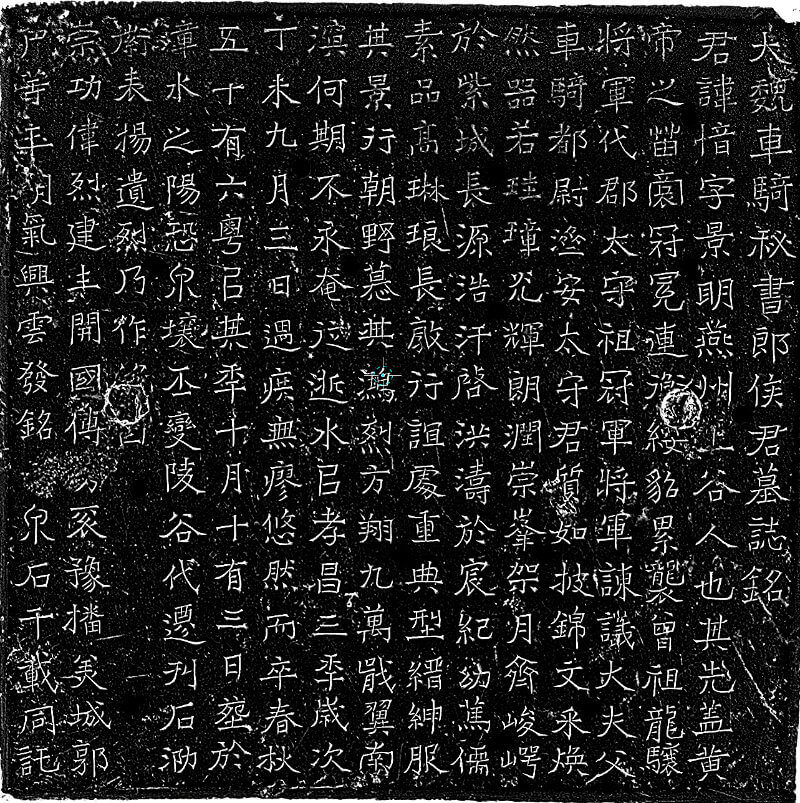 大魏車騎秘書郎侯君墓誌銘
君諱愔字景明燕州上谷人也其先蓋黃
帝之苗裔冠冕連綿綬貂累襲曾祖龍驤
將軍代郡太守祖冠軍將軍諫議大夫父
車騎都尉遼安太守君質如披錦文采煥
然器若珪璋光輝朗潤崇峯架月齊峻崿
於紫城長源浩汗啓洪濤於宸紀幼蔫儒
素品高琳琅長敦行誼處重典型縉紳服
其景行朝野慕其鴻烈方翔九萬戢翼南
溟何期不永奄從逝水以孝昌三秊歲次
丁未九月三日遇疾無廖悠然而卒春秋
五十有六粵以其秊十月十有三日葬於
漳水之陽恐泉壤丕變陵谷代遷刊石泐
銜表揚遺烈乃作銘曰
崇功偉烈建丰開國傳 豕豫播美城郭
年 氣興雲發銘 泉石千載同託